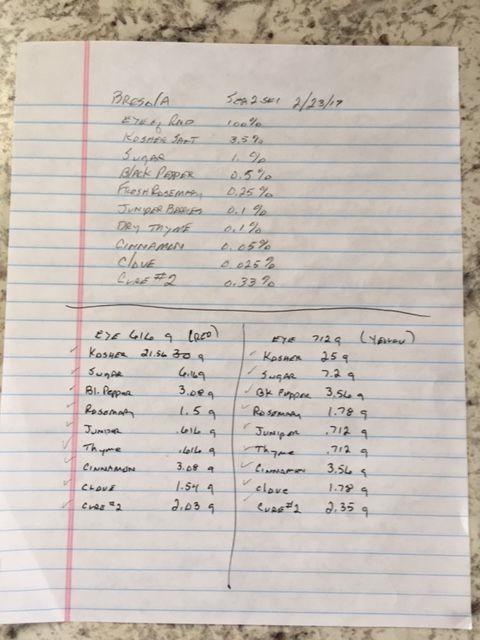 BRESOLA 2/23/17
EYE of RND 100%
KOSHER SALT 3.5%
SUGAR 1. %
BLACK PEPPER 0.5%
FRESH ROSEMARY 0.25%
JUNIPER BERRIES 0.1%
DRY THYME 0.1%
CINNAMON 0.05%
CLOVE 0.025%
CURE #2 0.33%
EYE 616 g (RED)
KOSHER 21.56 g
SUGAR 6.16g
Bl. PEPPER 3.08g
ROSEMARY 1.5 g
JUNIPER .616 g
Thyme .616 g
CINNAMON 3.08 g
CLOVE 1.54 g
CURE #2 2.03 g
EYE 712g (YELLOW)
KOSHER 25g
SUGAR 7.2 g
BK PEPPER 3.56g
ROSEMARY 1.78 g
JUNIPER .712 g
Thyme .712 g
CINNAMON 3.56 g
CLOVE 1.78 g
CURE #2 2.35 g